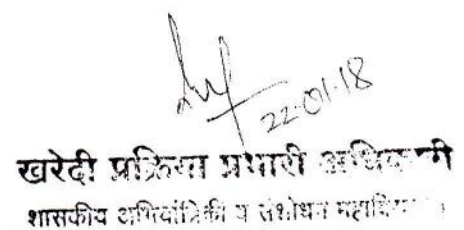 22.01.18
खरेदी प्रक्रिया प्रभारी अधिकारी
शासकीय अभियांत्रिकी व संशोधन महाविद्यालय